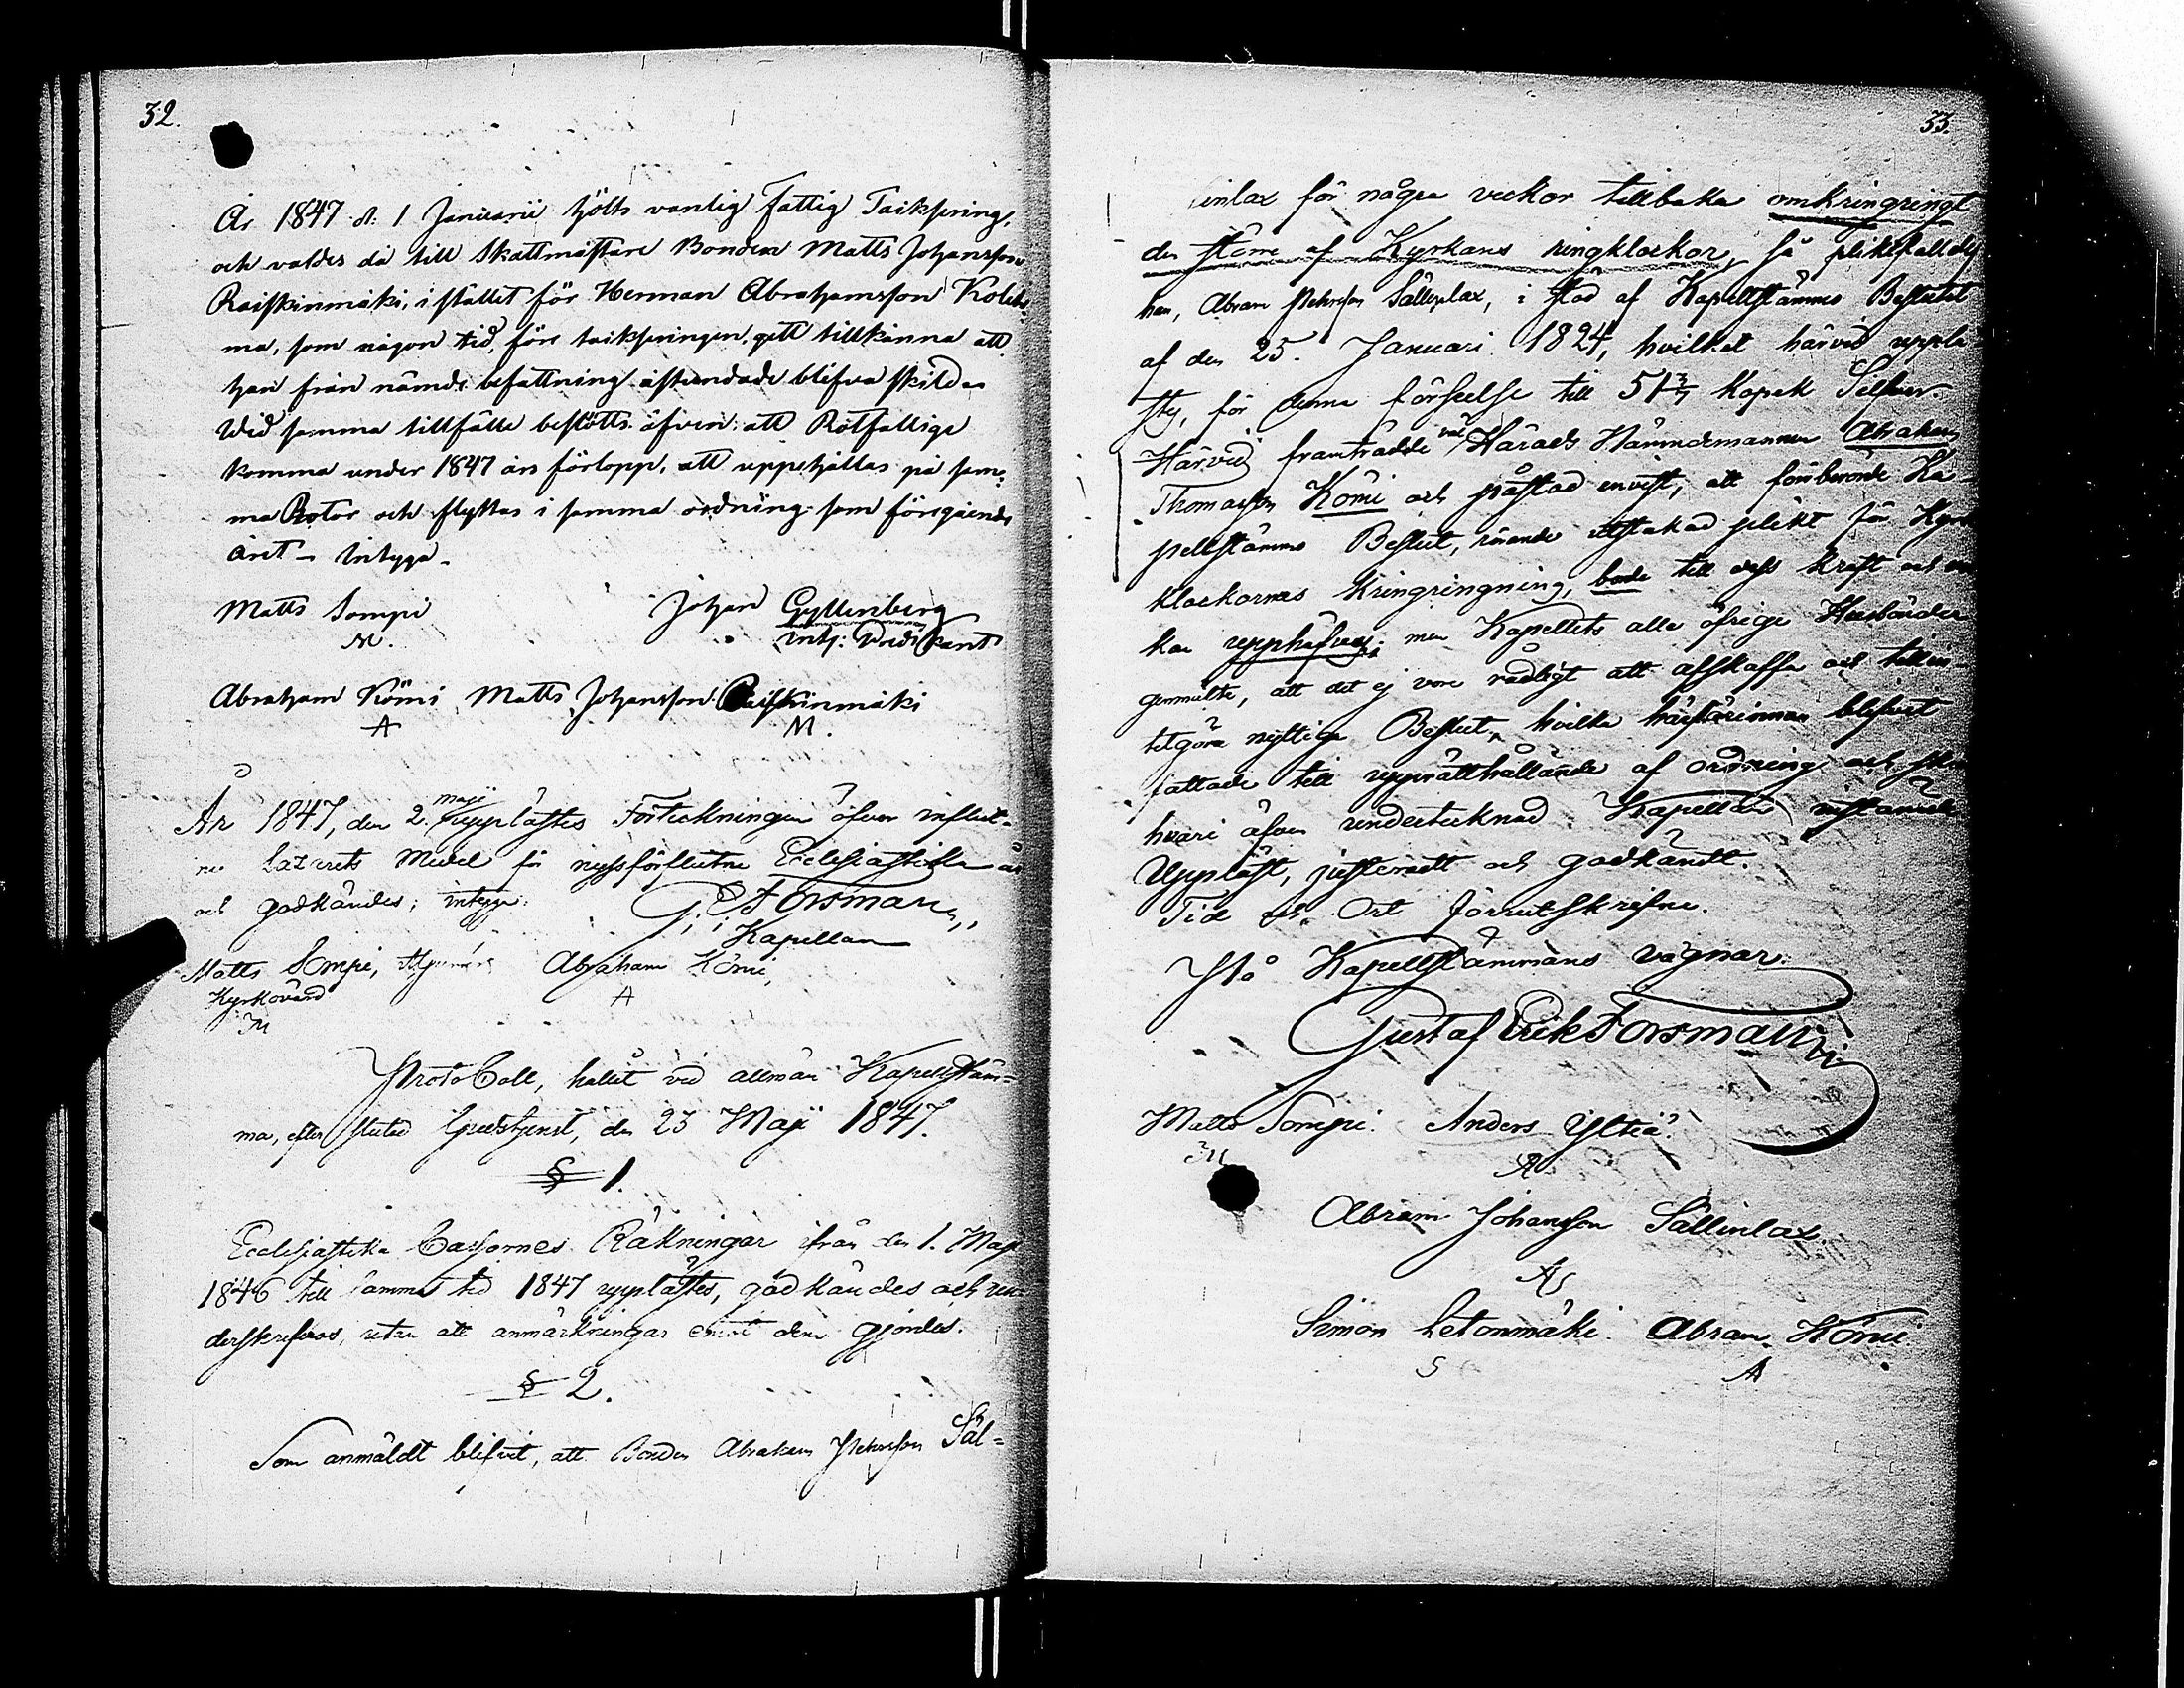 32.
År 1847 d. 1 Januarii hölts vanlig Fattig Taikspring,
och valdes då till Skattmästare Bonden Matts Johansson
Raiskinmäki, i stället för Herman Abrahamsson Koleh-
ma, som någon tid, före taikspringen, gett tillkänna att
han från nämde befattning åstundade blifva skild.
Wid samma tillfälle bestötts äfven att Rotfattige
komma under 1847 års förlopp, att uppehållas på sam-
ma Rotar och flyttas i samma ordning som föregående
året - intyga -
Matts Sompi Johan Gyllenberg
M. Predikant
Abraham Kömi Matts Johansson Raiskinmäki
A M.
År 1847, den 2. Maji upplästes Förteckningen öfver influt-
ne Lazarets Medel för nyssförflutne Ecclesiastika år
och godkändes; intyga:
G. E. Forsman,
Kapellan
Matts Sompi, Abraham Kömi,
Kyrkovärd A
M
Protocoll, hållit vid allmän Kapellstäm-
ma, efter slutad Gudstjenst, den 23 Maji 1847.
§ 1.
Ecclesiastika Cassornes Räkningar ifrån den 1. Maji
1846 till samma tid 1847 upplästes, godkändes och un-
derskrefvos, utan att anmärkningar emot dem gjordes.
§ 2.
Som anmäldt blifvit, att Bonden Abraham Pehrsson Säl-
33.
linlax för några veckor tillbaka omkringringt
den större af Kyrkans ringklockor, så pliktfälldes
han, Abram Pehrsson Sällinlax, i stöd af Kapellstämmo Beslutet
af den 25. Januari 1824, hvilket härvid upplä-
stes, för denna förseelse till 51 3/7 Kopek Silfver.
Härvid framträdde Härads Nämndemannen Abraham
Thomasson Kömi och påstod envist, att förberörde Ka-
pellstämmo Beslut, rörande utstakad plikt för Kyrk-
klockornas Kringringning, borde till dess kraft och
kan upphäfvas; men Kapellets alla öfrige Husbönder
genmälte, att det ej vore rådligt att afskaffa och tillin-
tetgöra nyttiga Beslut, hvilka härförinnan blifvit
fattade till upprätthållande af ordning och
hvari äfven undertecknad Kapellan instämde
Uppläst, justeradt och godkändt.
Tid och Ort förrutskrifne.
På Kapellstämmans vägnar:
Gustaf Erik Forsman
Matts Sompi. Anders Ylliä.
M A
Abram Johansson Sällinlax.
A
Simon Letonmäki. Abram Kömi.
S A